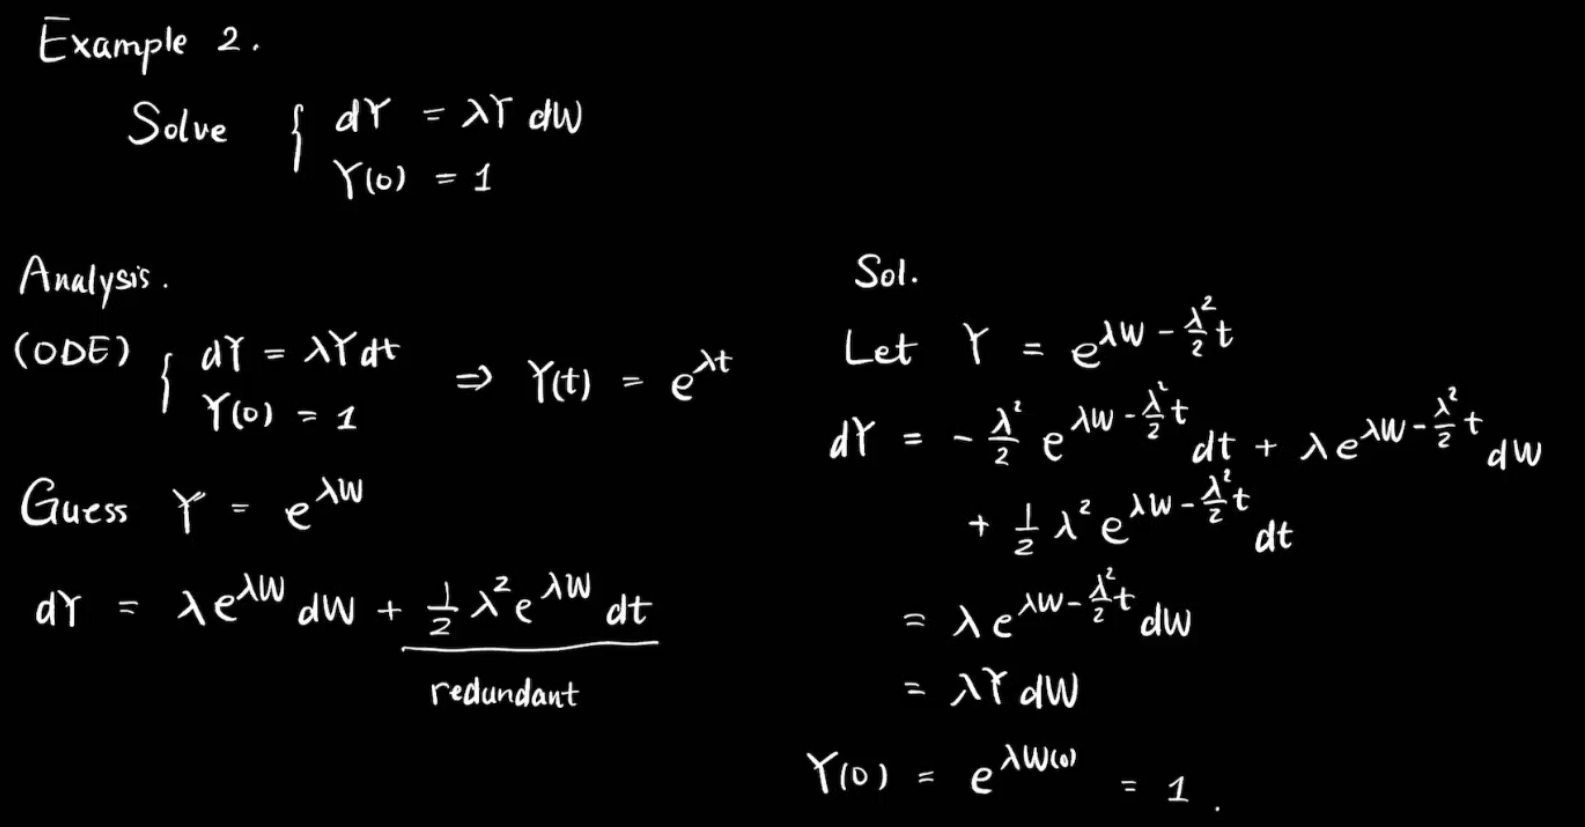 Example 2.
Solve { dY = λY dW
Y(0) = 1
Analysis.
(ODE) { dY = λY dt
Y(0) = 1 ⇒ Y(t) = e^{λt}
Guess Y = e^{λW}
dY = λe^{λW} dW + \frac{1}{2} λ² e^{λW} dt
redundant
Sol.
Let Y = e^{λW - \frac{λ²}{2}t}
dY = - \frac{λ²}{2} e^{λW - \frac{λ²}{2}t} dt + λ e^{λW - \frac{λ²}{2}t} dW
+ \frac{1}{2} λ² e^{λW - \frac{λ²}{2}t} dt
= λ e^{λW - \frac{λ²}{2}t} dW
= λY dW
Y(0) = e^{λW(0)} = 1.